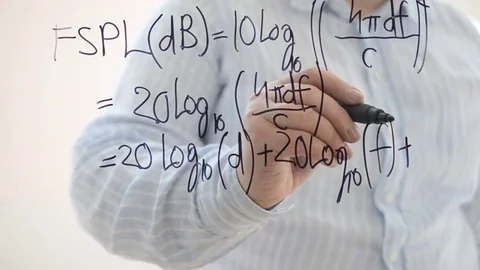 FSPL(dB)=10Log₁₀((4πdf/c)
= 20Log₁₀(4πdf/c)
=20Log₁₀(d)+20Log₁₀(f)+